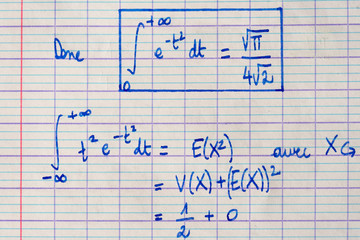 Donc ∫₀^{+∞} e^{-t²} dt = √π / 4√2
∫_{-∞}^{+∞} t² e^{-t²} dt = E(X²) avec X
= V(X) + (E(X))²
= 1/2 + 0